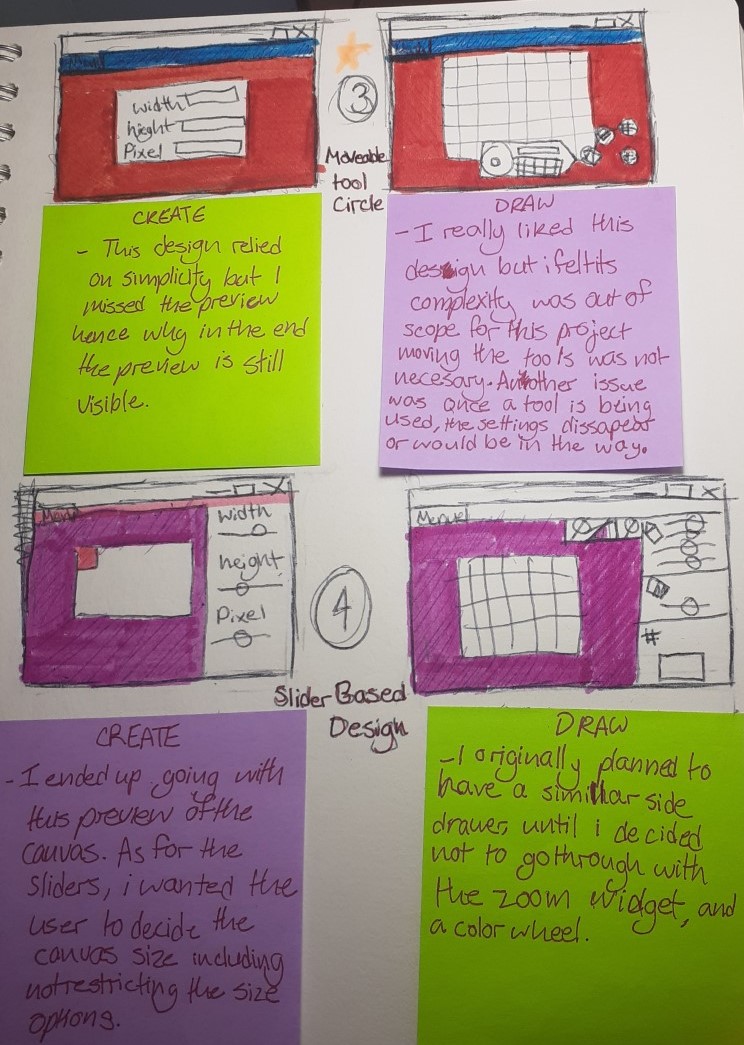 X
X
Menu
width
hieght
Pixel
3
Moveable
tool
Circle
CREATE
- This design relied
on simplicity but I
missed the preview
hence why in the end
the preview is still
visible.
DRAW
- I really liked this
design but i felt its
complexity was out of
scope for this project
moving the tools was not
necesary. Another issue
was once a tool is being
used, the settings dissapear
or would be in the way.
X
X
Menu
width
height
Pixel
Menu
#
4
Slider Based
Design
CREATE
- I ended up going with
this preview of the
canvas. As for the
sliders, i wanted the
user to decide the
canvas size including
not restricting the size
options.
DRAW
- I originally planned to
have a simillar side
drawer, until i decided
not to go through with
the zoom widget, and
a color wheel.